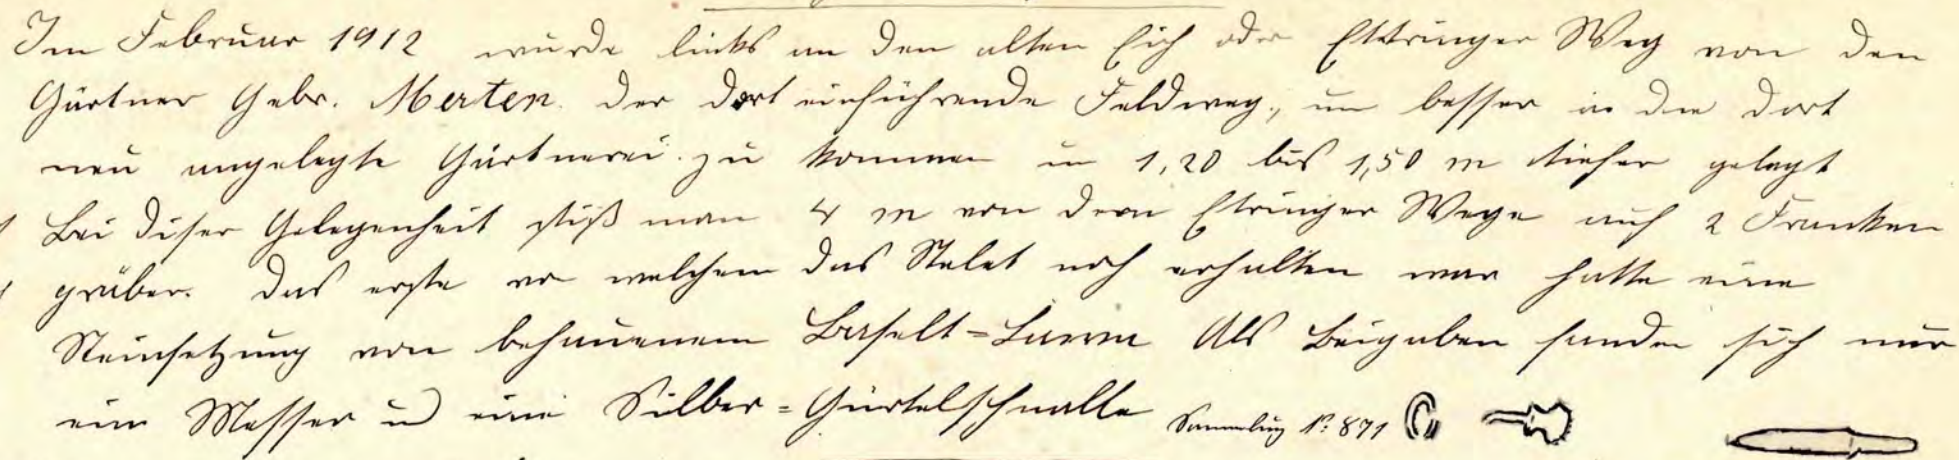 Im Februar 1912 wurde links an den alten Eich oder Ettringer Weg von den
Gärtner Gebr. Merten. der dort einführende Feldweg, um besser in die dort
neu angelegte Gärtnerei zu kommen um 1,20 bis 1,50 m tiefer gelegt
Bei diser Gelegenheit stiß man 4 m von dem Etringer Wege auf 2 Franken
gräber. Das erste vo welchem das Skelet noch erhalten war hatte eine
Steinsetzung von behauenem Baselt=Lawa Als Beigaben fanden sich nur
ein Messer u eine Silber=Gürtelschnalle Sammlung No. 871